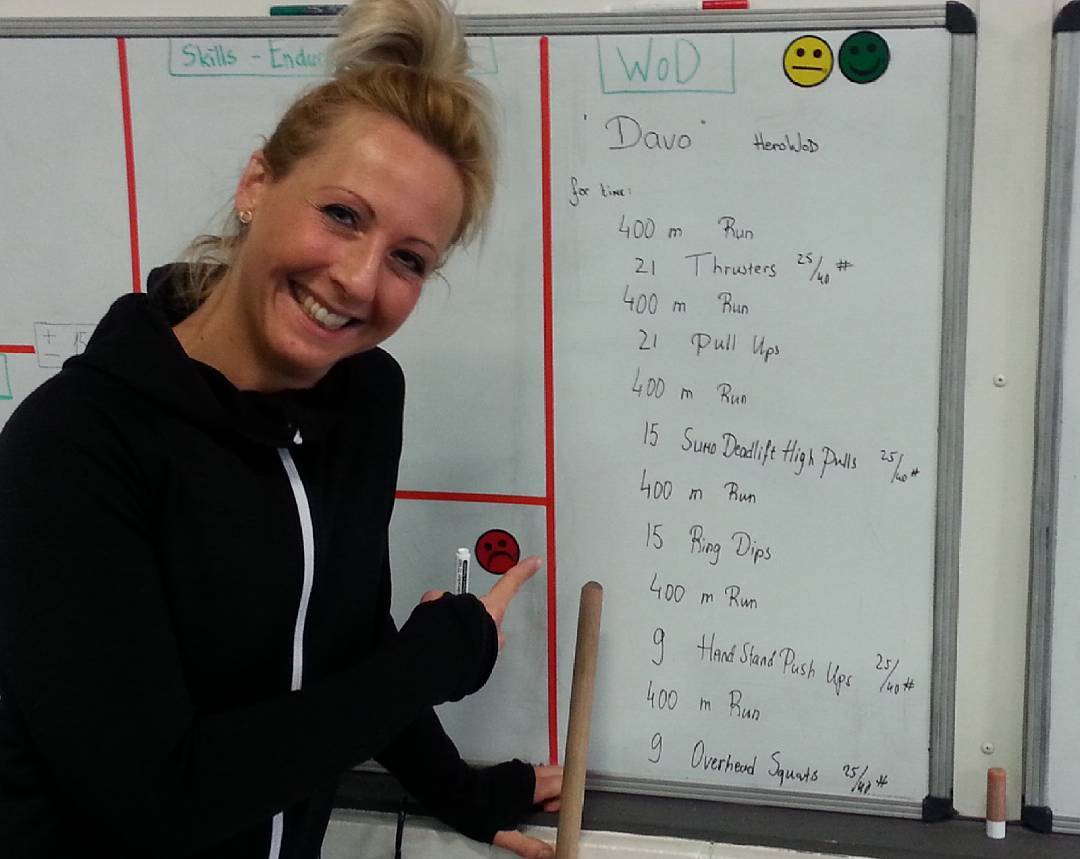 Skills - Endur
WoD
"Davo" HeroWoD
for time:
400 m Run
21 Thrusters 25/40 #
400 m Run
21 Pull Ups
400 m Run
15 Sumo Deadlift High Pulls 25/40 #
400 m Run
15 Ring Dips
400 m Run
9 Hand Stand Push Ups 25/40 #
400 m Run
9 Overhead Squats 25/40 #
+ 15
-